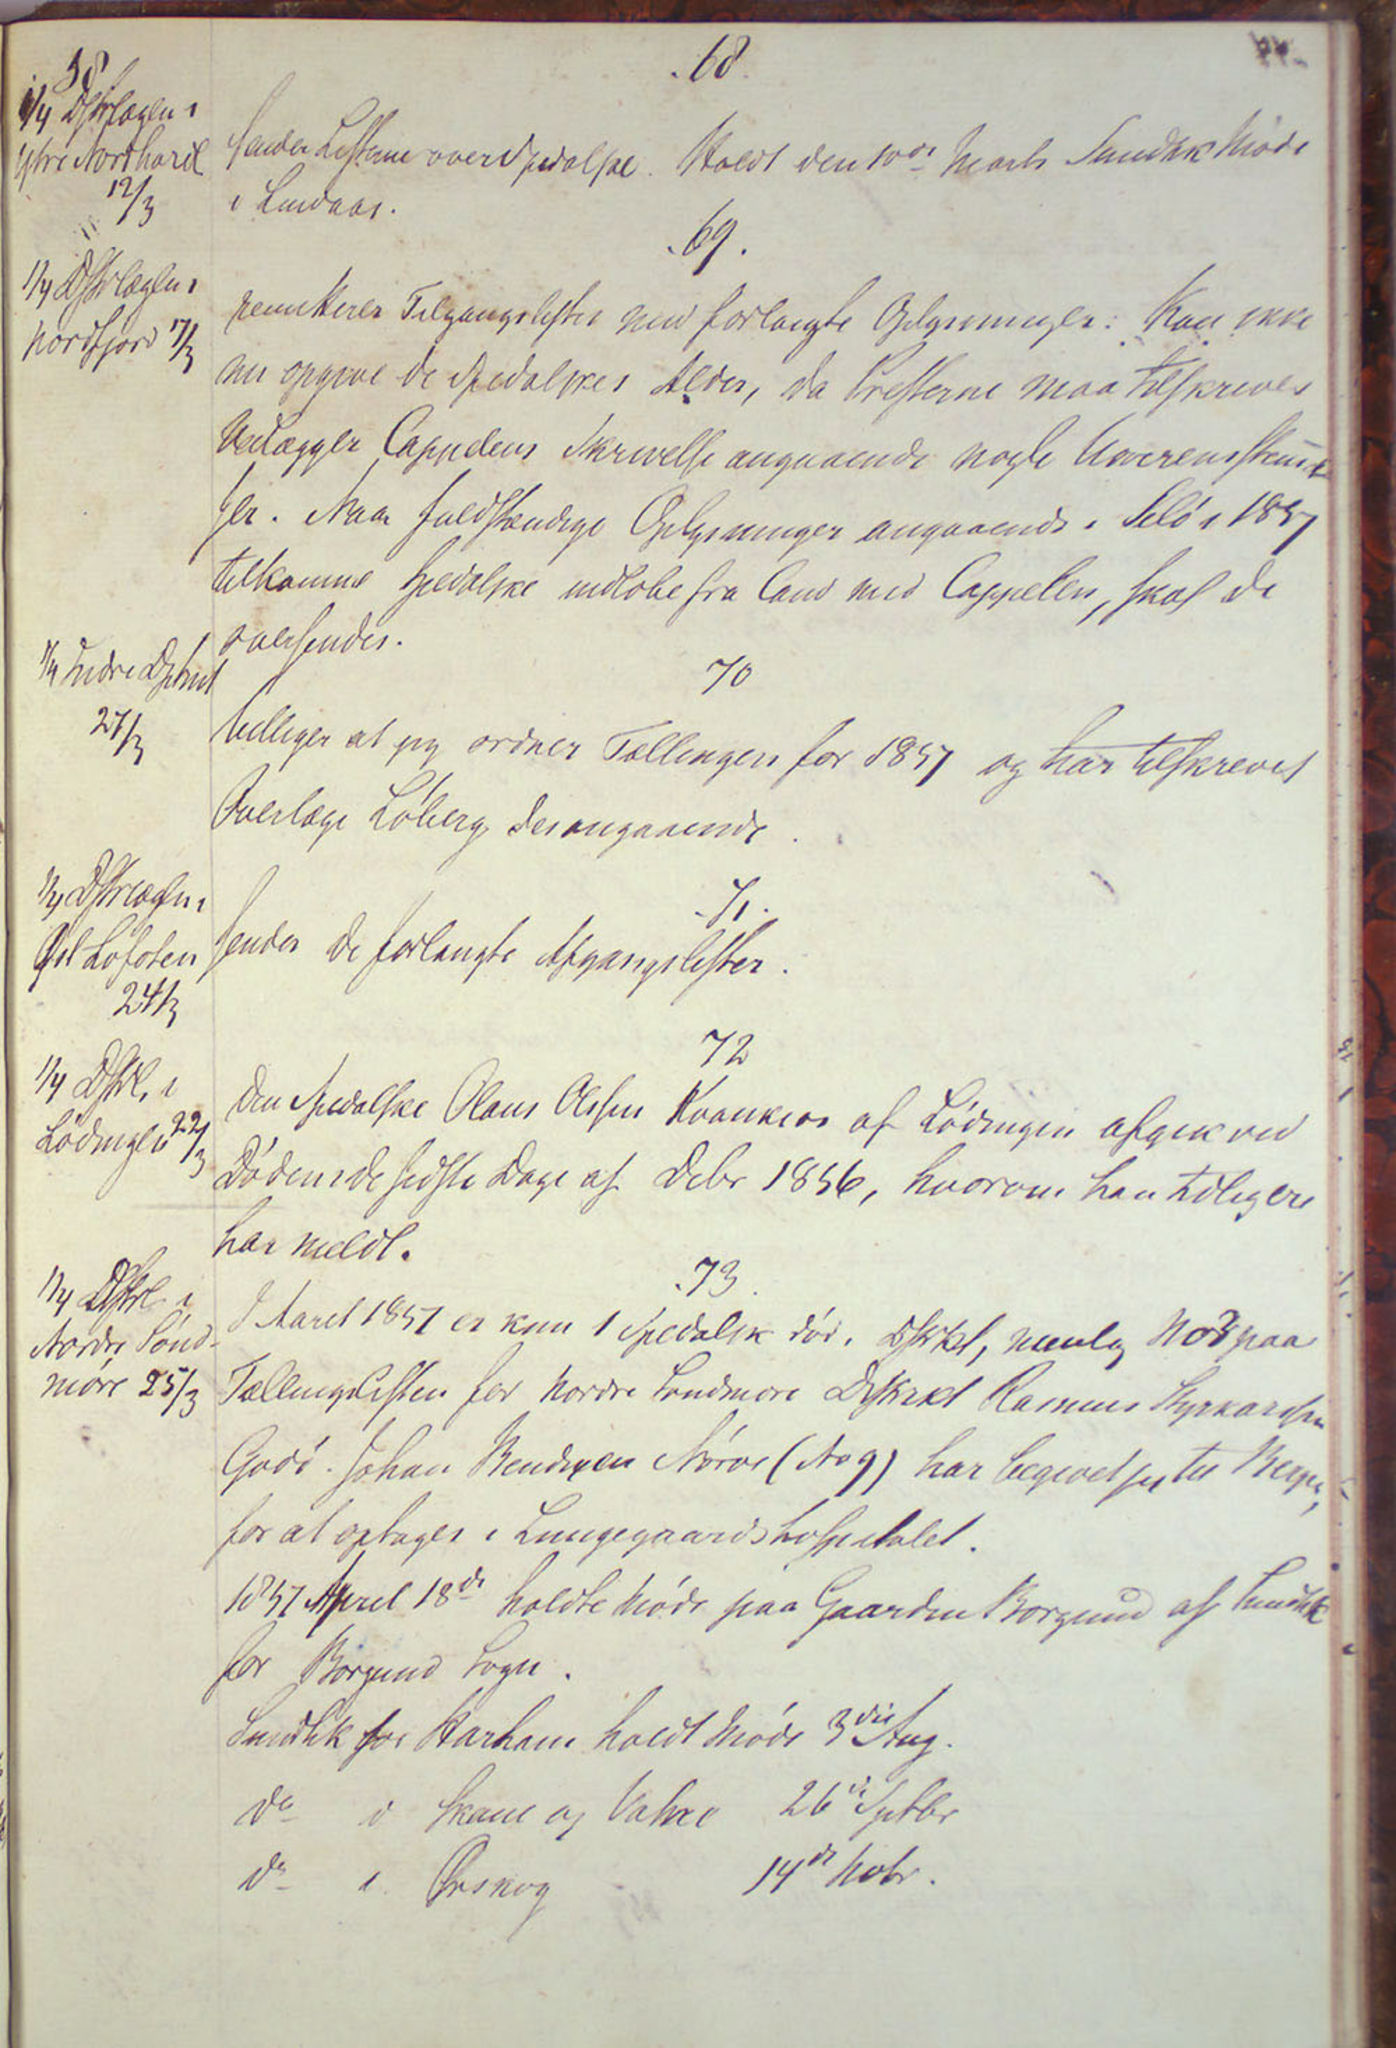 58
.68.
1/4 Dstrlægen i
Ytre Nordhordl
12/3
sender Listerne over Spedalske. Holdt den 10de Marts Sundhk Møde
i Lindaas.
.69.
1/4 Dstrlægen i
Nordfjord 17/3
remitterer Tilgangslister med forlangte Oplysninger. Kan ikke
nu opgive de Spedalskes Alder, da Presterne maa tilskrives
Vedlægger Cappelens Skrivelse angaaende nogle Uoverensstemmel
ser. Naar fuldstændige Oplysninger angaaende i Selø i 1857
tilkomne Spedalske indløbe fra Cand med Cappelen, skal de
oversendes.
1/4 Indre Dptmt
27/3
70
billiger at jeg ordner Tællingen for 1857 og har tilskrevet
Overlæge Løberg desangaaende.
1/4 Dstrlægen i
Øst Lofoten
24/3
.71.
sender de forlangte Afgangslister.
72
1/4 Dstrl. i
Lødingen 22/3
Den Spedalske Olaus Olsen Kvankros af Lødingen afgik ved
Døden i de sidste Dage af Debr 1856, hvorom han tidligere
har meldt.
.73.
1/4 Dstrl i
Nordre Sønd-
møre 25/3
I Aaret 1857 er kun 1 Spedalsk død i Dstrktet, nemlig No 8 paa
Tællingslisten for Nordre Søndmøre Distrikt Rasmus Styrkaarsen
Godø. Johan Bendixen Nørve (No 9) har begivet sig til Bergen,
for at optages i Lungegaardshospitalet.
1857 April 18de holdtes Møde paa Gaarden Borgund af Sundhk
for Borgund Sogn.
Sundhk for Harham holdt Møde 3die Aug.
do i Skaue og Vatne 26de Septbr
do i Ørskog 14de Nobr.